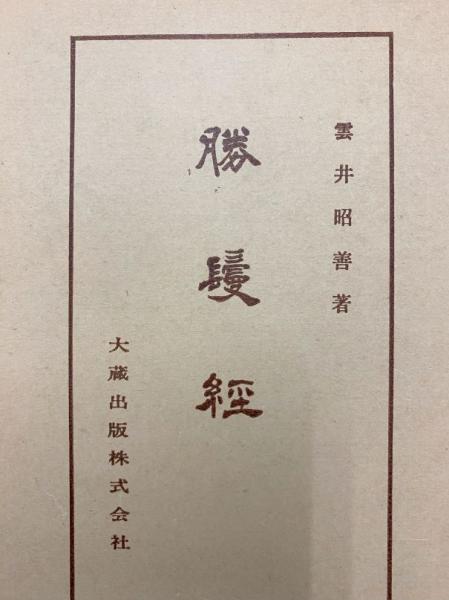 雲井昭善著
勝鬘経
大蔵出版株式会社